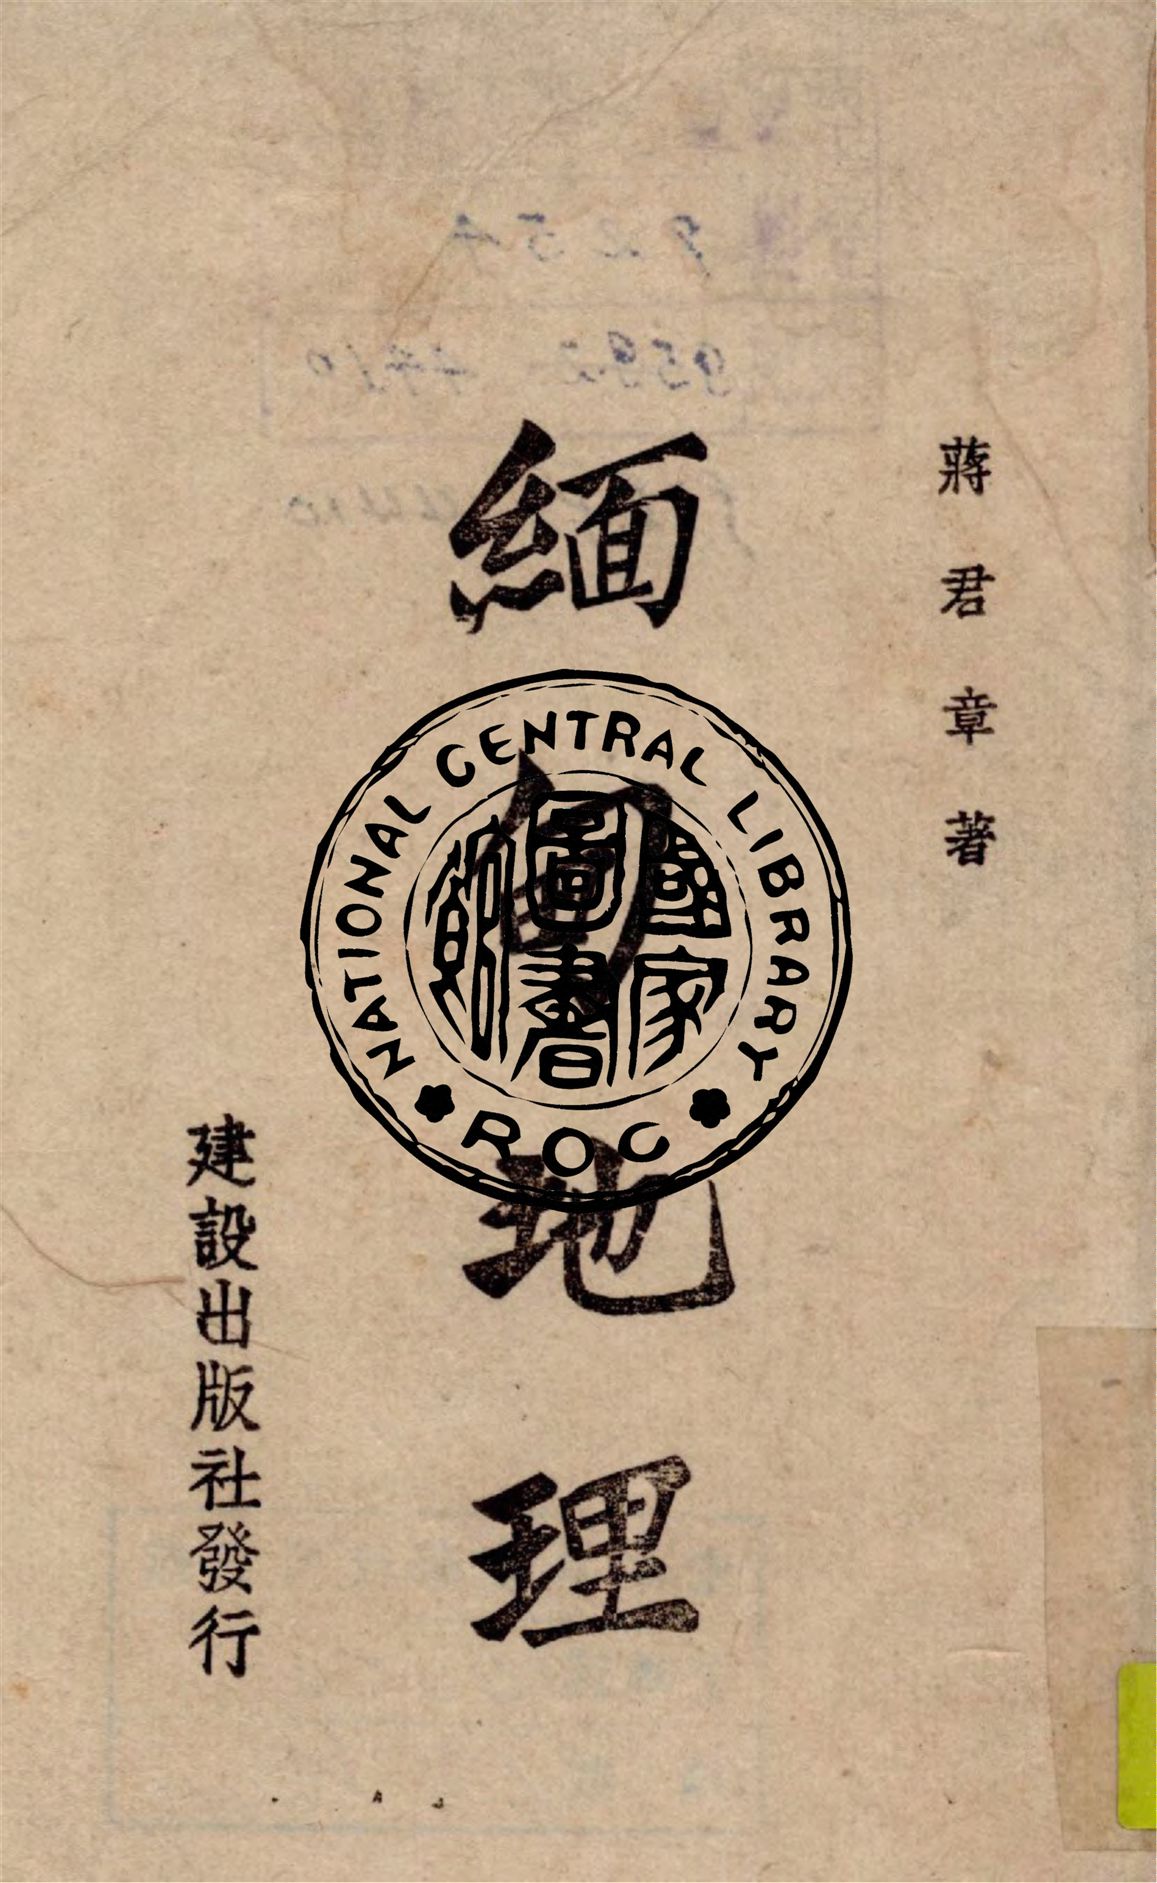 蔣君章著
緬甸地理
建設出版社發行
NATIONAL CENTRAL LIBRARY
ROC
國家圖書館